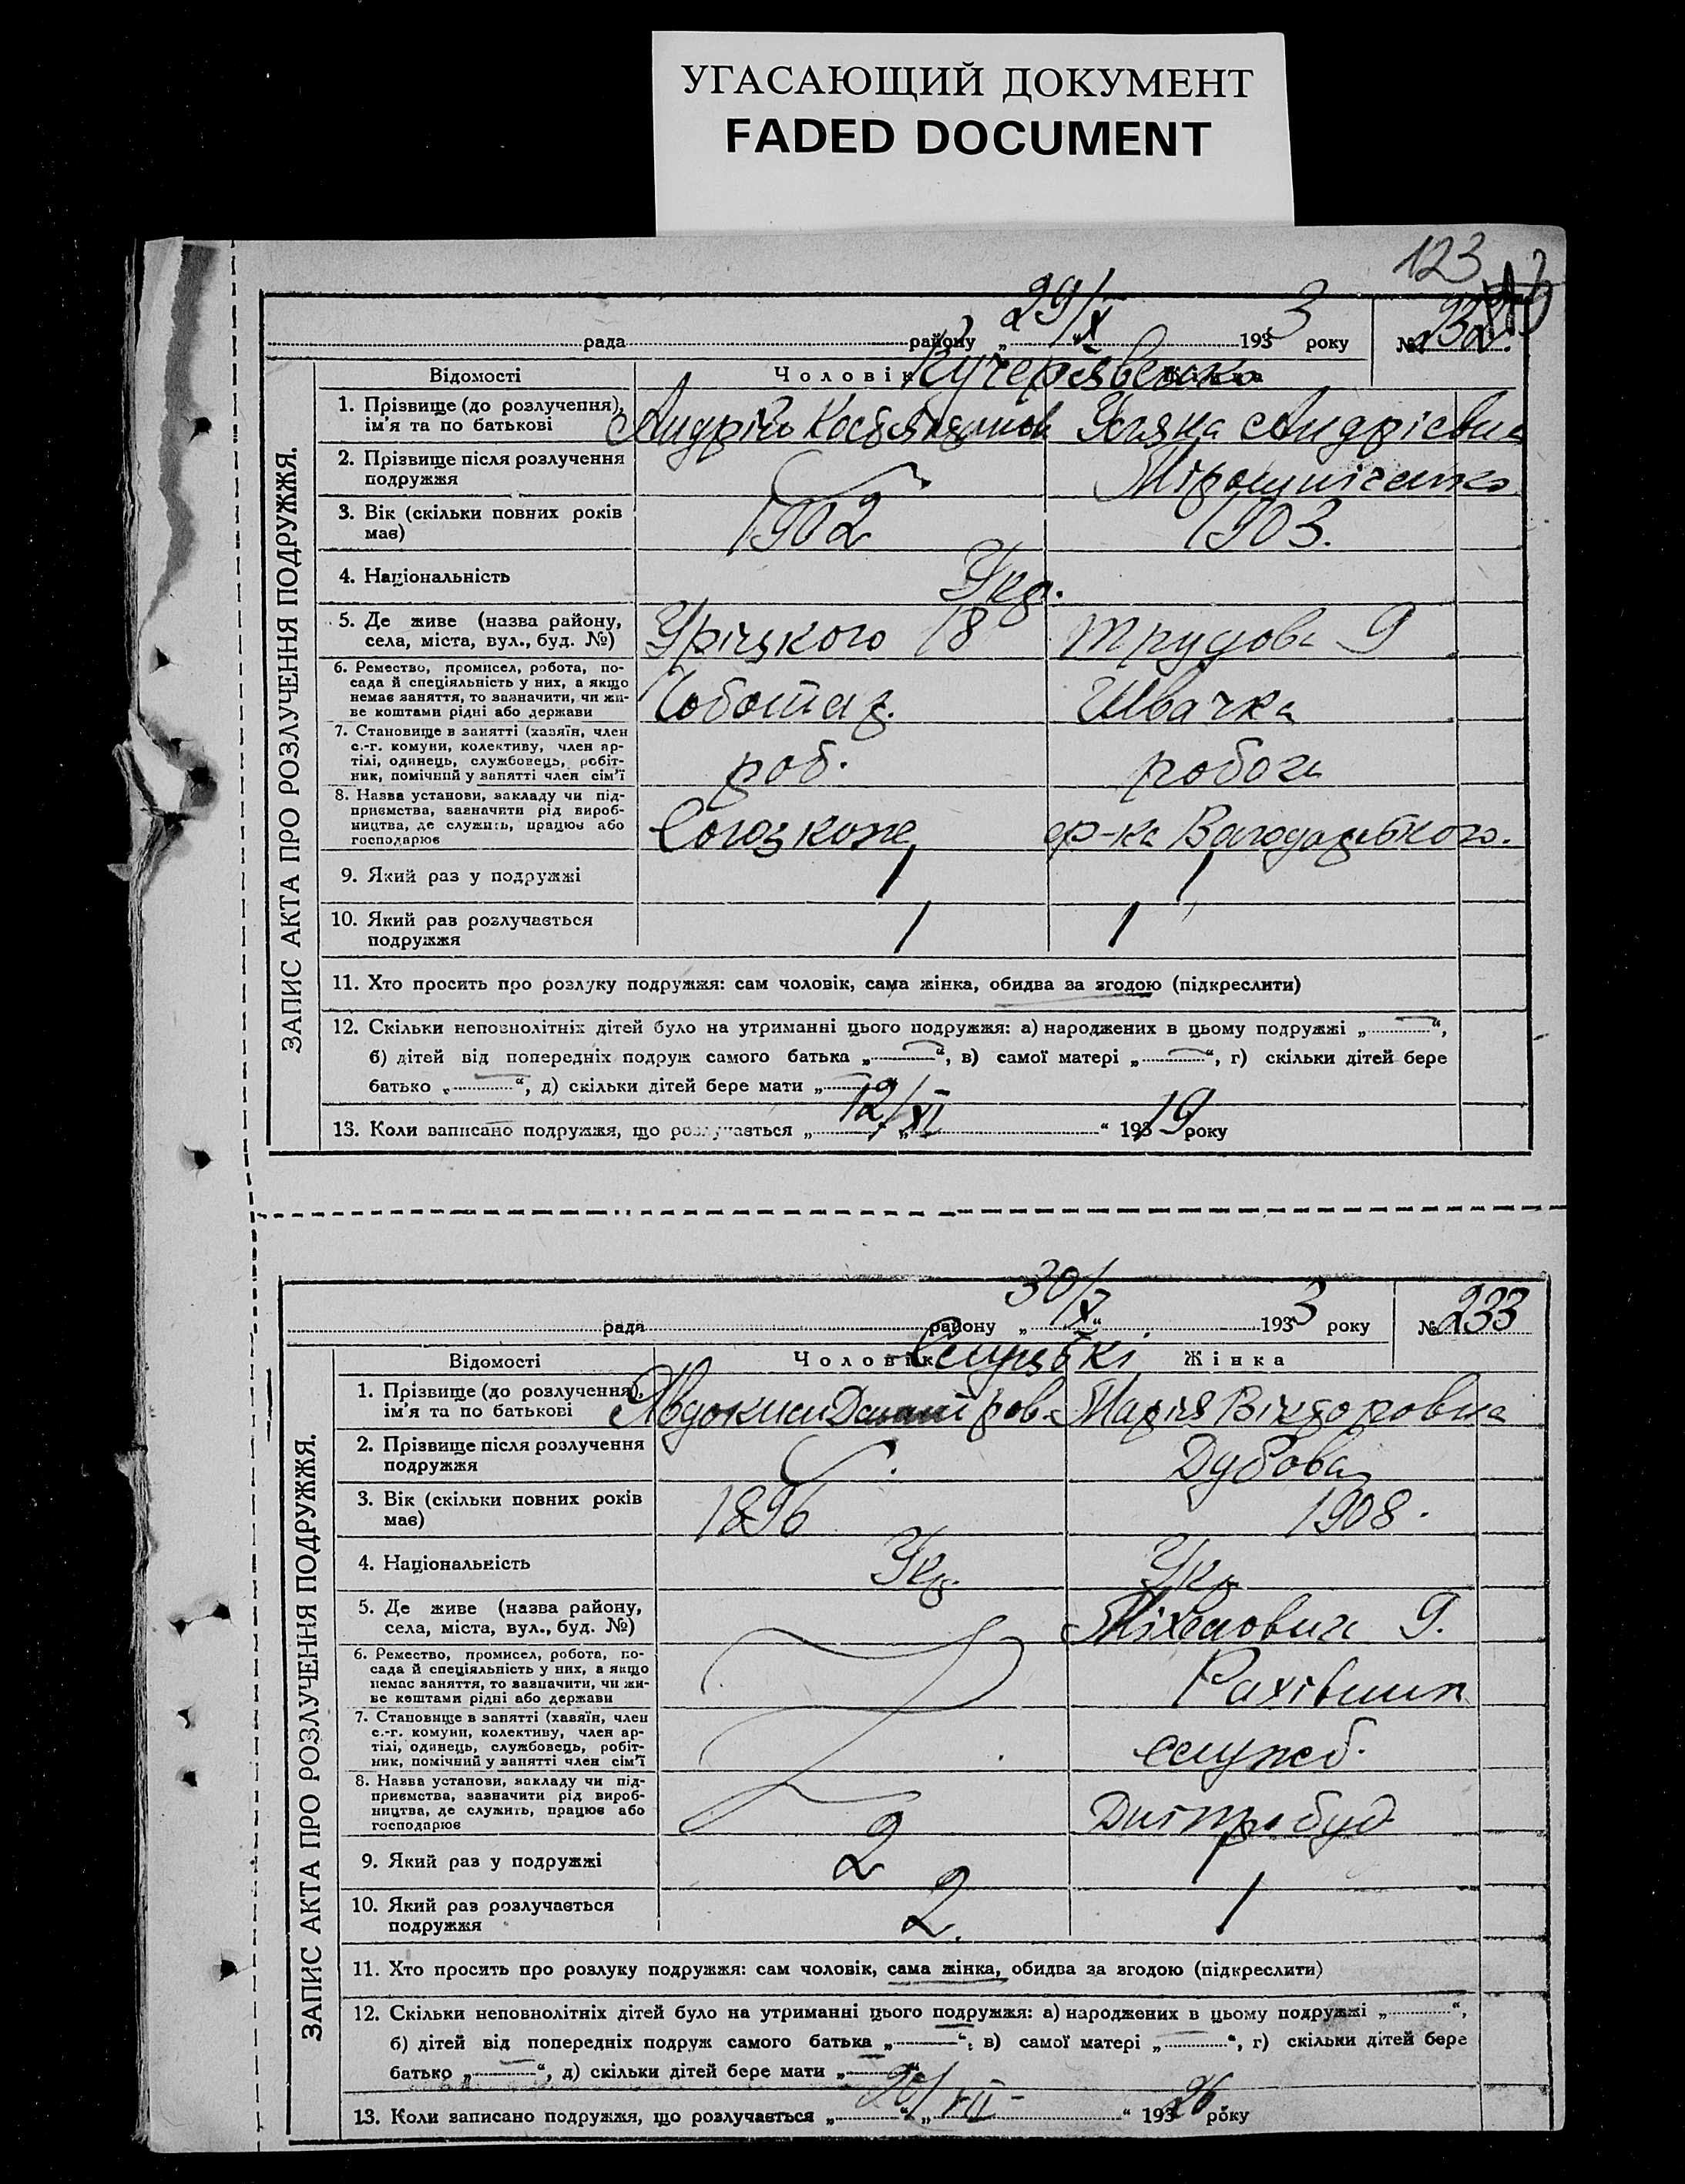 УГАСАЮЩИЙ ДОКУМЕНТ
FADED DOCUMENT
123
ЗАПИС АКТА ПРО РОЗЛУЧЕННЯ ПОДРУЖЖЯ.
рада району „29/X“ 1933 року № 232.
Відомості Чоловік Жінка
Кучерявенко
1. Прізвище (до розлучення), ім'я та по батькові Андрій Костянтинов Уляна Андрієвна
2. Прізвище після розлучення подружжя Мірошніченко
3. Вік (скільки повних років має) 1902 1903.
4. Національність Укр.
5. Де живе (назва району, села, міста, вул., буд. №) Уріцкого 18 Трудова 9
6. Ремество, промисел, робота, посада й спеціяльність у них, а якщо немає заняття, то зазначити, чи живе коштами рідні або держави Чоботар. Швачка
7. Становище в занятті (хазяїн, член с.-г. комуни, колективу, член артілі, одинець, службовець, робітник, помічний у занятті член сім'ї роб. робоча
8. Назва установи, закладу чи підприємства, зазначити рід виробництва, де служить, працює або господарює Союзкожа ф-ка Володарского.
9. Який раз у подружжі 1 1
10. Який раз розлучається подружжя 1 1
11. Хто просить про розлуку подружжя: сам чоловік, сама жінка, обидва за згодою (підкреслити)
12. Скільки неповнолітніх дітей було на утриманні цього подружжя: а) народжених в цьому подружжі „—“,
б) дітей від попередніх подруж самого батька „—“, в) самої матері „—“, г) скільки дітей бере
батько „—“, д) скільки дітей бере мати „—“
13. Коли записано подружжя, що розлучається „12/XI“ 19319 року
ЗАПИС АКТА ПРО РОЗЛУЧЕННЯ ПОДРУЖЖЯ.
рада району „30/X“ 1933 року № 233
Відомості Чоловік Жінка
1. Прізвище (до розлучення), ім'я та по батькові Марія Вікторовна
2. Прізвище після розлучення подружжя Дубова
3. Вік (скільки повних років має) 1896 1908.
4. Національність Укр. Укр
5. Де живе (назва району, села, міста, вул., буд. №) 9.
6. Ремество, промисел, робота, посада й спеціяльність у них, а якщо немає заняття, то зазначити, чи живе коштами рідні або держави Рахівник
7. Становище в занятті (хазяїн, член с.-г. комуни, колективу, член артілі, одинець, службовець, робітник, помічний у занятті член сім'ї служб.
8. Назва установи, закладу чи підприємства, зазначити рід виробництва, де служить, працює або господарює Дніпробуд
9. Який раз у подружжі 2 1
10. Який раз розлучається подружжя 2. 1
11. Хто просить про розлуку подружжя: сам чоловік, сама жінка, обидва за згодою (підкреслити)
12. Скільки неповнолітніх дітей було на утриманні цього подружжя: а) народжених в цьому подружжі „—“,
б) дітей від попередніх подруж самого батька „—“, в) самої матері „—“, г) скільки дітей бере
батько „—“, д) скільки дітей бере мати „—“
13. Коли записано подружжя, що розлучається „20/VII“ 19326 року